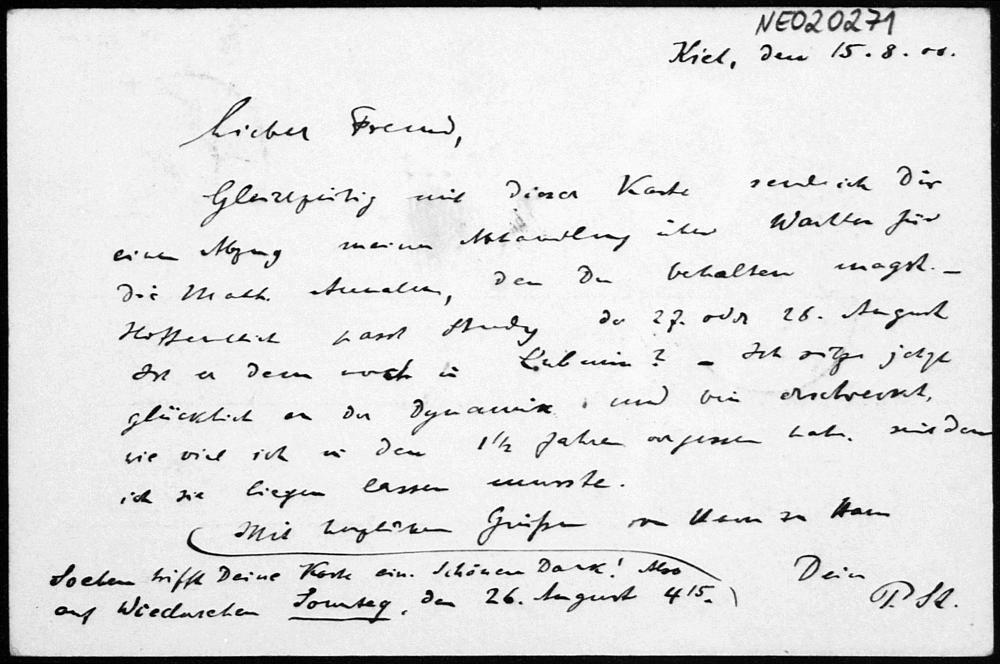 NEO20271
Kiel, den 15. 8. 00.
Lieber Freund,
Gleichzeitig mit dieser Karte sende ich Dir
einen Abzug meiner Abhandlung über Walther für
die Math. Annalen, den Du behalten magst. –
Hoffentlich passt Study der 27. oder 26. August
Ist er denn noch in Lubmin? – Ich sitze jetzt
glücklich an der Dynamik, und bin erschreckt,
wie viel ich in den 1 1/2 Jahren vergessen habe, seitdem
ich sie liegen lassen musste.
Mit herzlichen Grüßen von Haus zu Haus
Dein
P. St.
Soeben trifft Deine Karte ein. Schönen Dank! Also
auf Wiedersehen Sonntag, den 26. August 4 15.